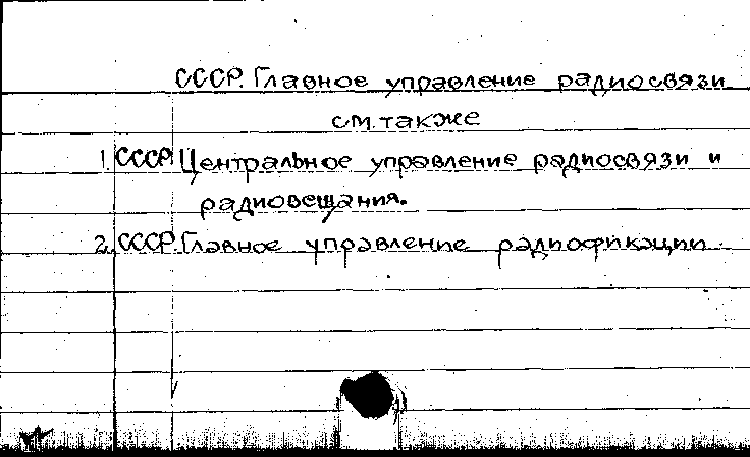 СССР. Главное управление радиосвязи
см. также
1. СССР. Центральное управление радиосвязи и
радиовещания.
2. СССР. Главное управление радиофикации